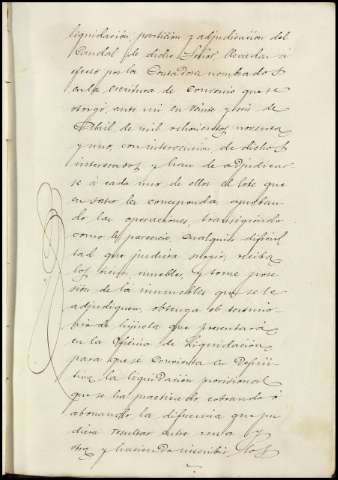 liquidación, partición y adjudicacion del
Caudal de dicho Señor, llevadas á
efecto por los Contadores nombrados
en la escritura de convenio que se
otorgó ante mi en veinte y seis de
Abril de mil ochocientos noventa
y uno, con intervencion de dichos
interesados y han de adjudicar
se á cada uno de ellos el lote que
en pago les corresponda, aprobando
las operaciones, transigiendo
como le parezca, cualquier dificul
tad que pudiera surgir, reciba
los bienes muebles, y tome pose
sion de los inmuebles que se le
adjudiquen, obtenga el testimo
nio de hijuela que presentará
en la Oficina de Liquidación
para que se convierta en Defini
tiva la liquidación provisional
que se ha practicado, cobrando ó
abonando la diferencia que pu
diera resultar entre una y
otra, y haciendo inscribir los